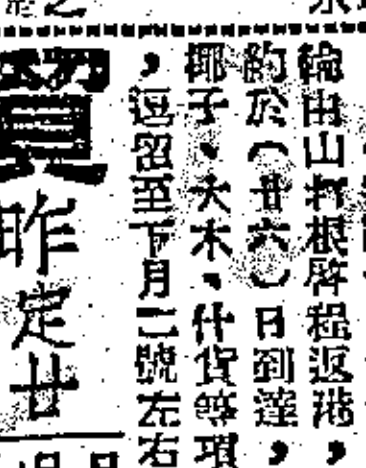 輪由山打根啓程返港，
約於（廿六）日到達，
椰子、大木、什貨等項
，逗留至下月二號左右
貿
昨定廿